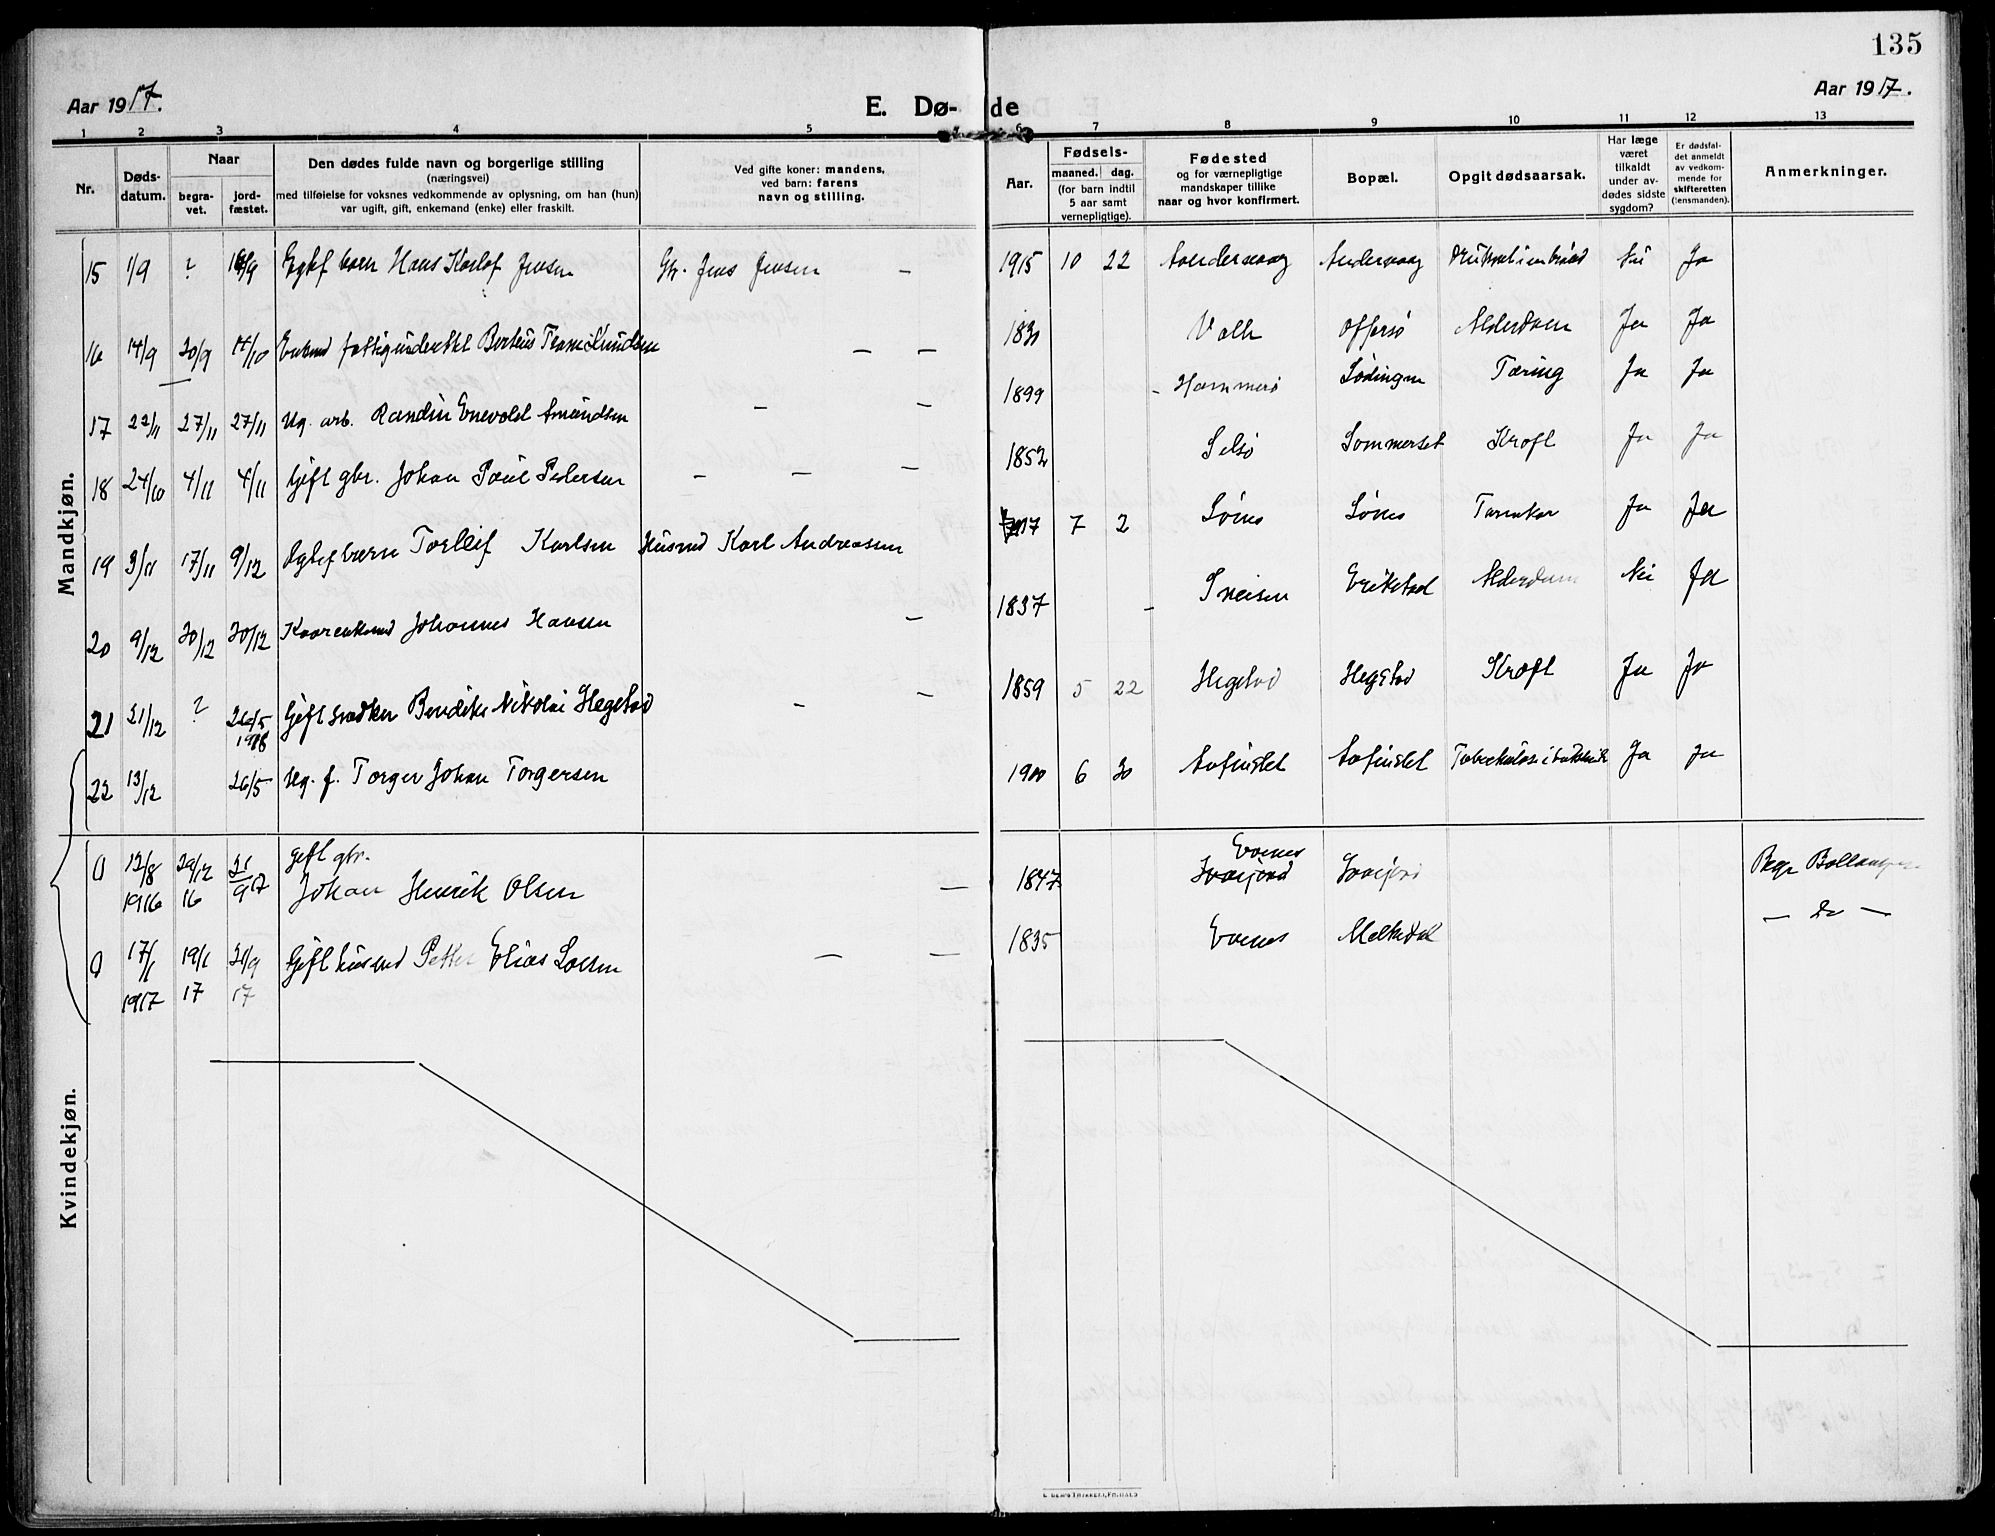 135
Aar 1917.
E. Dø- de
Aar 1917.
1 2 3 4 5 6 7 8 9 10 11 12 13
Nr.
Døds-
datum.
Naar
begra-
vet.
jord-
fæstet.
Den dødes fulde navn og borgerlige stilling
(næringsvei)
med tilføielse for voksnes vedkommende av oplysning, om han (hun)
var ugift, gift, enkemand (enke) eller fraskilt.
Ved gifte koner: mandens,
ved barn: farens
navn og stilling.
Aar.
Fødsels-
maaned. dag.
(for barn indtil
5 aar samt
vernepligtige).
Fødested
og for værnepligtige
mandskaper tillike
naar og hvor konfirmert.
Bopæl.
Opgit dødsaarsak.
Har læge
været
tilkaldt
under av-
dødes sidste
sygdom?
Er dødsfal-
det anmeldt
av vedkom-
mende for
skifteretten
(lensmanden).
Anmerkninger.
Mandkjøn.
15 1/9 ? 16/9 Egtef barn Hans Karlof Jensen Gbr. Jens Jensen — 1915 10 22 Aandervaag Andervaag Nei Ja
16 14/9 20/9 14/10 Enkemd fattigunderstl Berteus Knudsen — — 1831 Valle Offersø Alderdom Ja Ja
17 22/11 27/11 27/11 Ug. arb. Randin Enevold Amundsen — — 1899 - Hammerø Lødingen Tæring Ja Ja
18 24/10 4/11 4/11 Gift gbr. Johan Paul Pedersen — — — 1852 Selsø Sommerset Kræft Ja Ja
19 3/11 17/11 9/12 Egtef barn Torleif Karlsen Husmd Karl Andreassen 1917 7 2 Sønes Sønes Ja Ja
20 9/12 30/12 30/12 Kaarenkemd Johannes Hansen — 1837 Sneisen Erikstad Alderdom Nei Ja
21 21/12 ? 26/5 1918 Gift snedker Bendiks Nikolai Hegstad — — 1859 5 22 Hegstad Hegstad Kræft Ja Ja
22 13/12 26/5 Ug. f. Torger Johan Torgersen 1900 6 30 Aafinslet Aafinslet Ja Ja
0 12/8 1916 29/12 16 21/9 17 Gift gbr. Johan Henrik Olsen — 1847 Evenes Begr Ballangen
0 17/1 1917 19/1 17 21/9 17 Gift husmd Petter Elias Larsen — — 1835 Evenes Melkedal — Do —
Kvindekjøn.